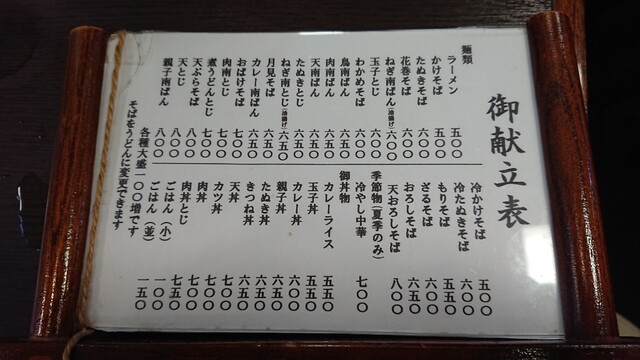 御献立表
麺類
ラーメン 五〇〇
かけそば 五〇〇
たぬきそば 六〇〇
花巻そば 六〇〇
ねぎ南ばん(油揚げ) 六〇〇
玉子とじ 六〇〇
わかめそば 六〇〇
鳥南ばん 六五〇
肉南ばん 六五〇
天南ばん 六五〇
たぬきとじ 六五〇
ねぎ南とじ(油揚げ) 六五〇
月見そば 六五〇
カレー南ばん 六五〇
おばけそば 七〇〇
肉南とじ 七〇〇
煮うどんとじ 七〇〇
天ぷらそば 八〇〇
天とじ 八〇〇
親子南ばん 八〇〇
各種大盛一〇〇増です
そばをうどんに変更できます
冷かけそば 五〇〇
冷たぬきそば 六〇〇
もりそば 五五〇
ざるそば 六〇〇
おろしそば 六五〇
天おろしそば 八〇〇
季節物(夏季のみ)
冷やし中華 七〇〇
御丼物
カレーライス 五五〇
玉子丼 五五〇
カレー丼 六〇〇
親子丼 六五〇
たぬき丼 六五〇
きつね丼 六五〇
天丼 七〇〇
カツ丼 七〇〇
肉丼 七〇〇
肉丼とじ 七五〇
ごはん(小) 一〇〇
ごはん(並) 一五〇